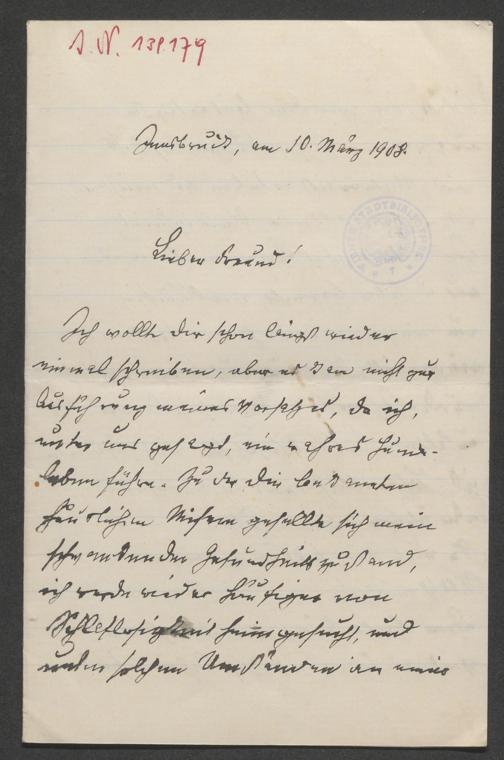 J. N. 139.179
Innsbruck, am 10. März 1908.
Lieber Freund!
Ich wollte dir schon längst wieder
einmal schreiben, aber es kam nicht zur
Ausführung meines Vorsatzes, da ich,
unter uns gesagt, ein wahres Hunde-
leben führe. Zu der dir bekannten
häuslichen Misere gesellte sich mein
schwankender Gesundheitszustand,
ich werde wieder häufiger von
Schlaflosigkeit heimgesucht, und
unter solchen Umständen an eine